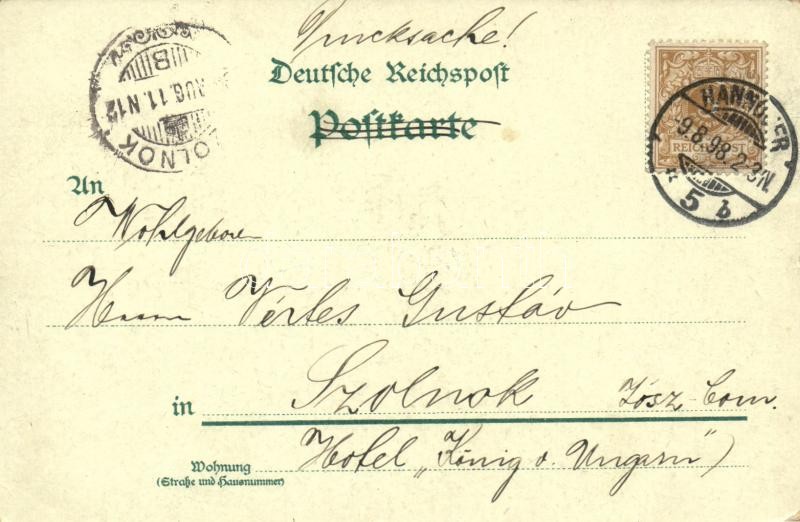 Drucksache!
Deutsche Reichspost
Postkarte
SZOLNOK
AUG. 11. N12
B
REICHSPOST
HANNOVER
-9.8.98. 2-3N.
* 5 b
An
Wohlgeboren
Herrn Vértes Gustáv
in Szolnok Jász-Com.
Wohnung Hotel „König v. Ungarn")
(Straße und Hausnummer)